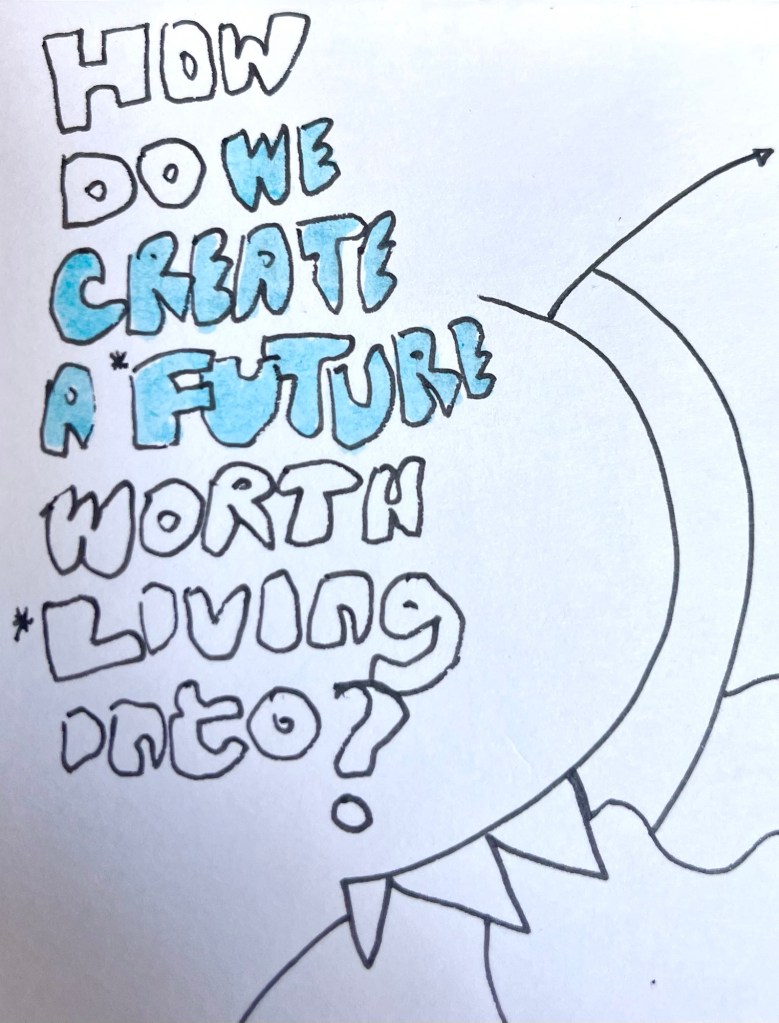 HOW
DO WE
CREATE
A *FUTURE
WORTH
*LIVING
into?